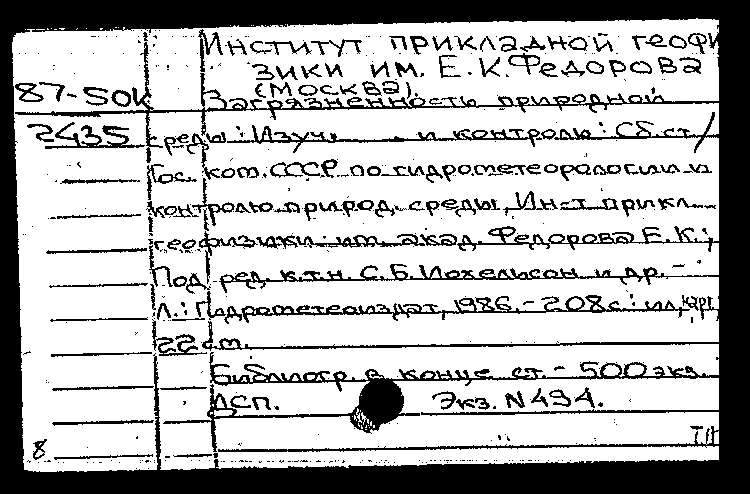 Институт прикладной геофи
зики им. Е.К.Федорова
(Москва).
87-50К Загрязненность природной
2435 среды: Изуч. и контроль: Сб.ст/
Гос. ком. СССР по гидрометеорологии и
контролю природ. среды, Ин-т прикл.
геофизики им. акад. Федорова Е.К.;
Под ред. к.т.н. С.Б.Иохельсон и др. -
Л.: Гидрометеоиздат, 1986. - 208с: ил, карт,
22 см.
Библиогр. в конце ст. - 500 экз.
ДСП. Экз. N 494.
8